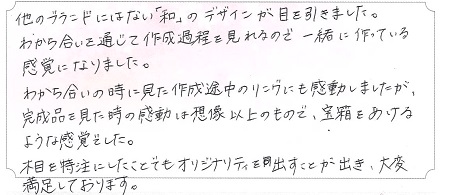 他のブランドにはない「和」のデザインが目を引きました。
わかち合いを通じて作成過程を見れるので一緒に作っている
感覚になりました。
わかち合いの時に見た作成途中のリングにも感動しましたが、
完成品を見た時の感動は想像以上のもので、宝箱をあける
ような感覚でした。
木目を特注にしたことでもオリジナリティを出すことが出き、大変
満足しております。